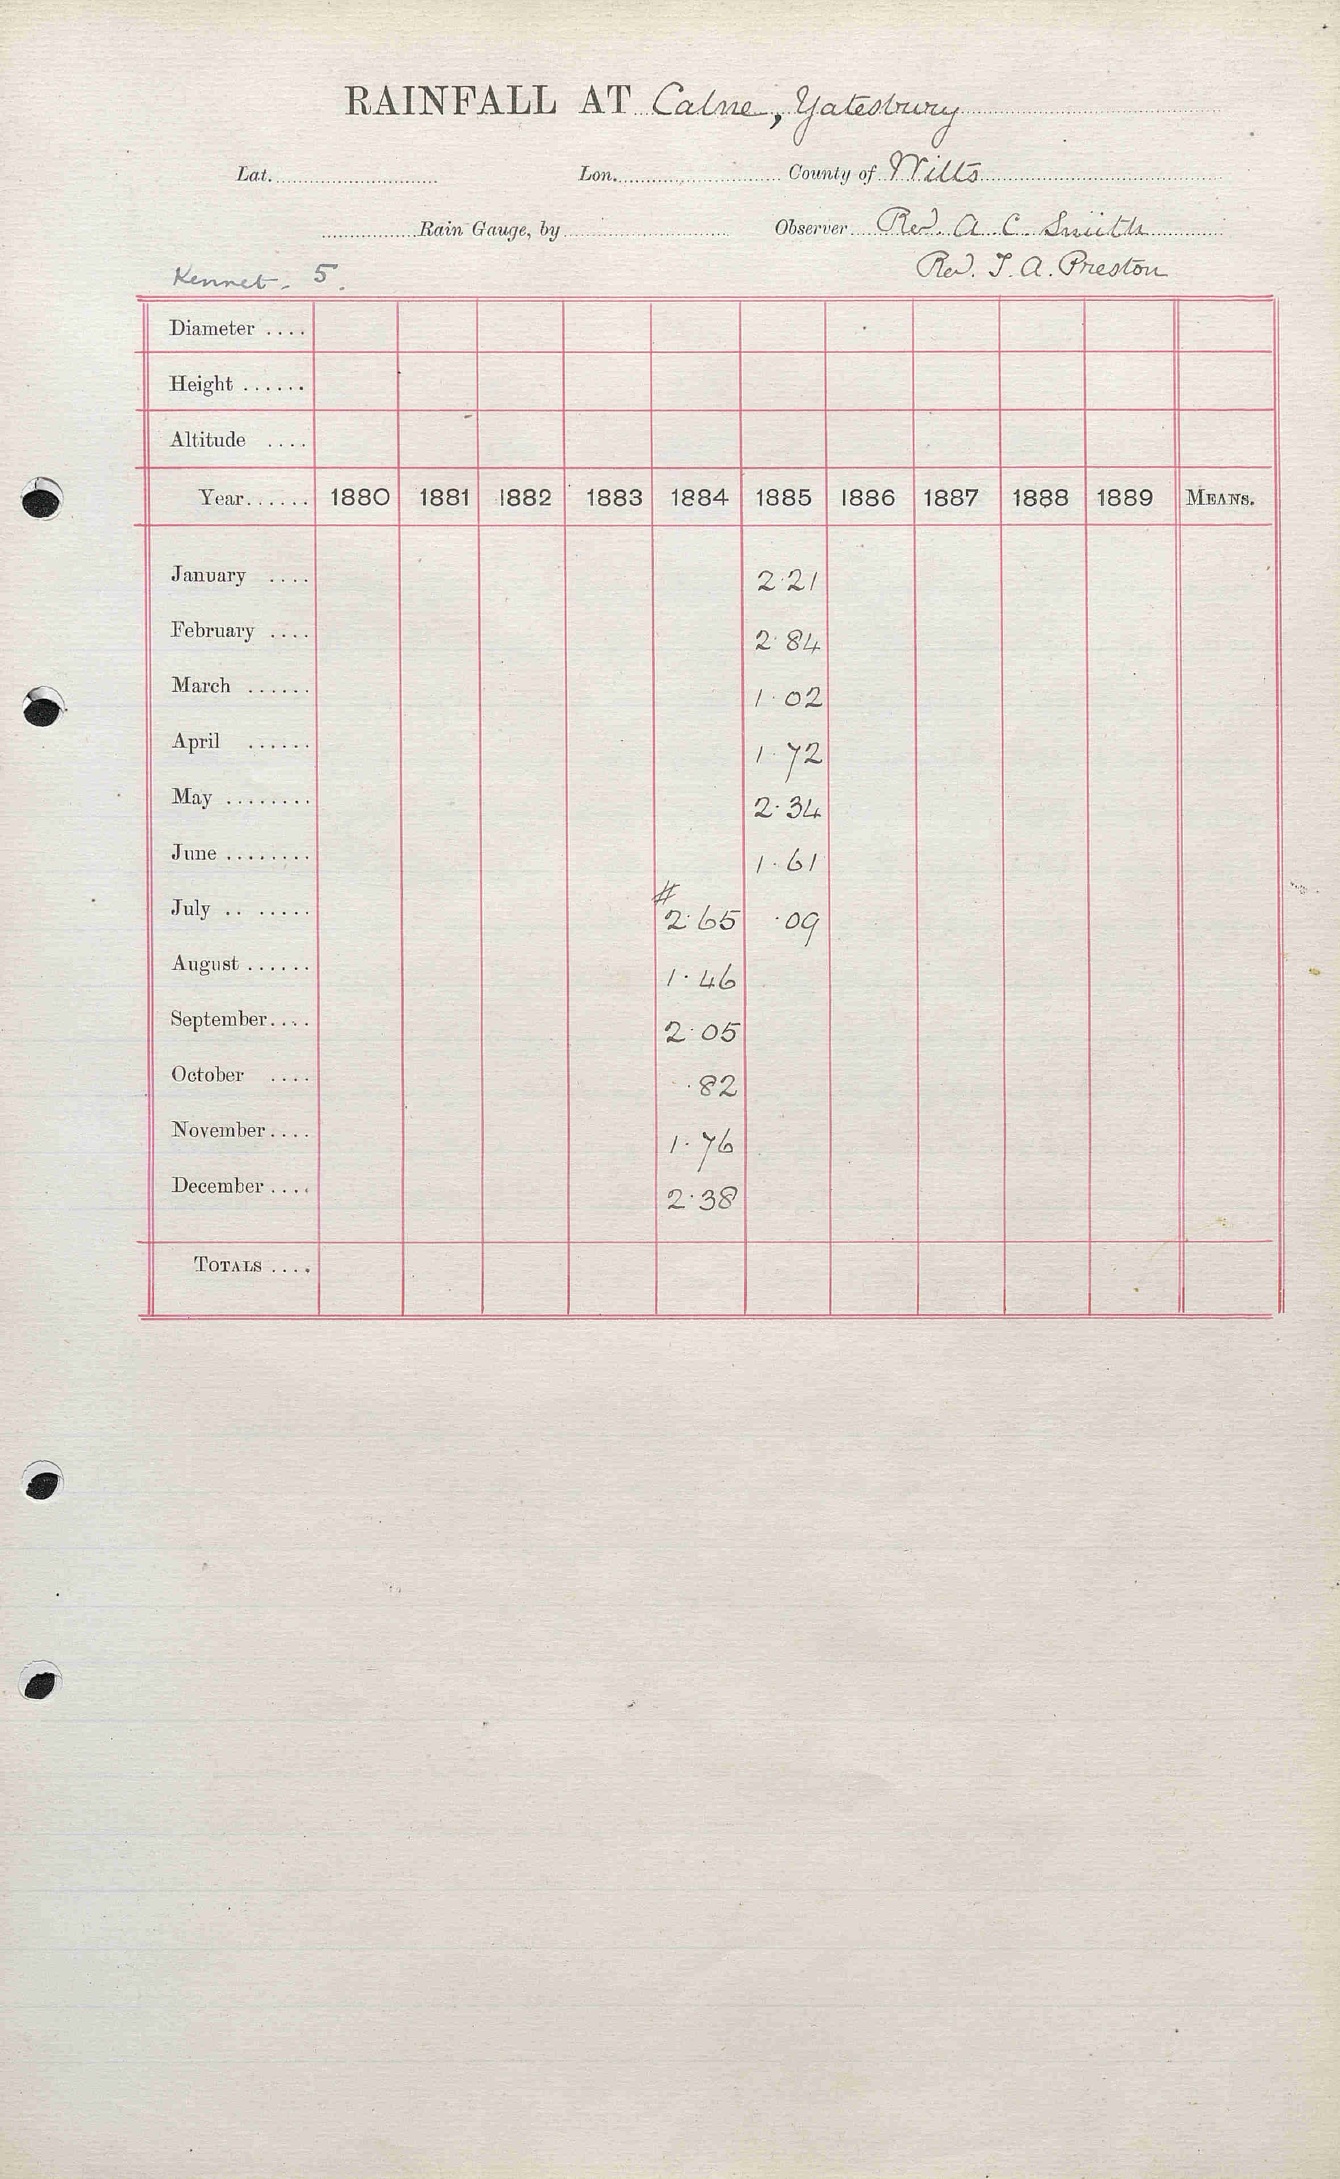 RAINFALL AT Calne, Yatesbury
Lat. Lon. County of Wilts
Rain Gauge, by Observer Revd. A. C. Smith
Kennet. 5. Revd. T. A. Preston
Diameter ....
Height ......
Altitude ....
Year...... 1880 1881 1882 1883 1884 1885 1886 1887 1888 1889 MEANS.
January .... 2.21
February .... 2.84
March ...... 1.02
April ...... 1.72
May ........ 2.34
June ........ 1.61
#
July .. ..... 2.65 .09
August ...... 1.46
September.... 2.05
October .... .82
November.... 1.76
December.... 2.38
TOTALS ....